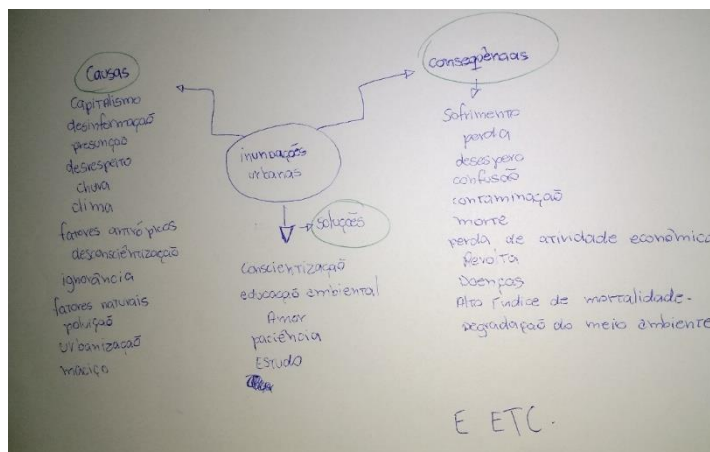 Causas
Capitalismo
desinformação
presunção
desrespeito
chuva
clima
fatores antrópicos
desconscientização
ignorância
fatores naturais
poluição
urbanização
maciço
inundações
urbanas
soluções
Conscientização
educação ambiental
Amor
paciência
Estudo
consequências
Sofrimento
perda
desespero
confusão
contaminação
morte
perda de atividade econômica
Revolta
Doenças
Alto índice de mortalidade.
Degradação do meio ambiente
E ETC.